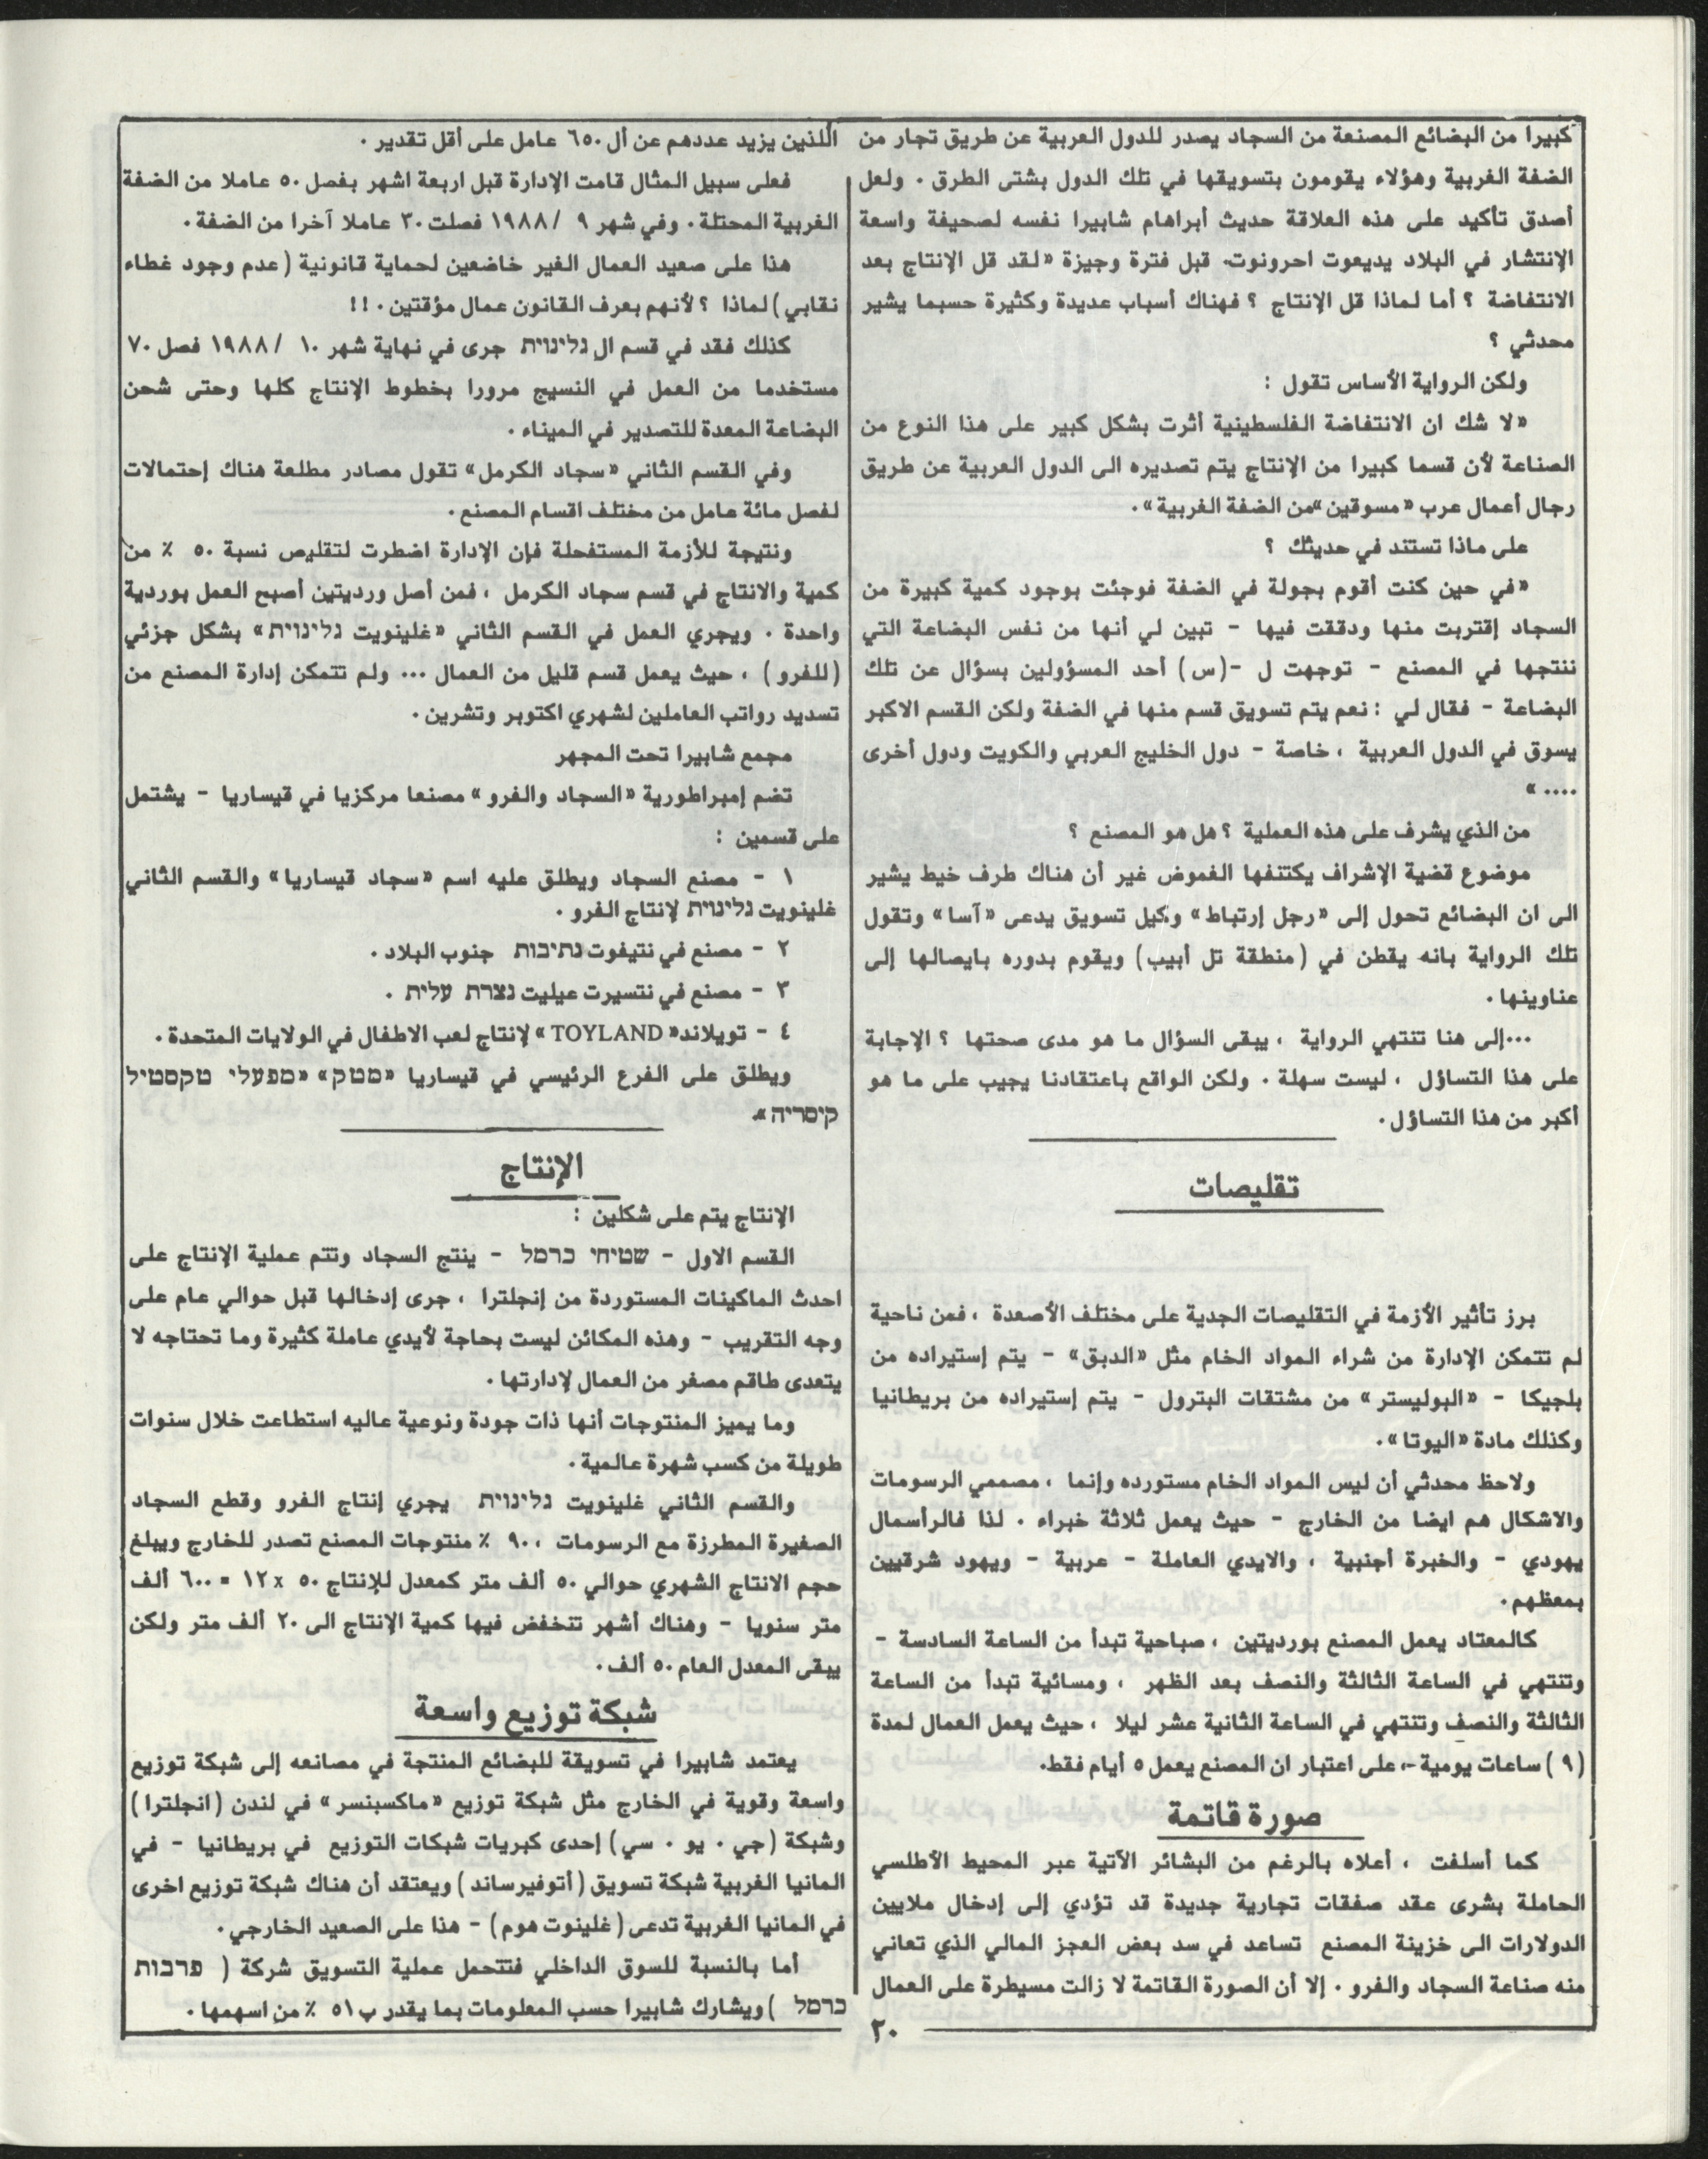 كبيرا من البضائع المصنعة من السجاد يصدر للدول العربية عن طريق تجار من
الضفة الغربية وهؤلاء يقومون بتسويقها في تلك الدول بشتى الطرق . ولعل
أصدق تأكيد على هذه العلاقة حديث أبراهام شابيرا نفسه لصحيفة واسعة
الإنتشار في البلاد يديعوت احرونوت. قبل فترة وجيزة «لقد قل الإنتاج بعد
الانتفاضة ؟ أما لماذا قل الإنتاج ؟ فهناك أسباب عديدة وكثيرة حسبما يشير
محدثي ؟
ولكن الرواية الأساس تقول :
«لا شك ان الانتفاضة الفلسطينية أثرت بشكل كبير على هذا النوع من
الصناعة لأن قسما كبيرا من الإنتاج يتم تصديره الى الدول العربية عن طريق
رجال أعمال عرب «مسوقين»من الضفة الغربية».
على ماذا تستند في حديثك ؟
«في حين كنت أقوم بجولة في الضفة فوجئت بوجود كمية كبيرة من
السجاد إقتربت منها ودققت فيها - تبين لي أنها من نفس البضاعة التي
ننتجها في المصنع - توجهت ل -(س) أحد المسؤولين بسؤال عن تلك
البضاعة - فقال لي : نعم يتم تسويق قسم منها في الضفة ولكن القسم الاكبر
يسوق في الدول العربية ، خاصة - دول الخليج العربي والكويت ودول أخرى
.... »
من الذي يشرف على هذه العملية ؟ هل هو المصنع ؟
موضوع قضية الإشراف يكتنفها الغموض غير أن هناك طرف خيط يشير
الى ان البضائع تحول إلى «رجل إرتباط» وكيل تسويق يدعى «آسا» وتقول
تلك الرواية بانه يقطن في (منطقة تل أبيب) ويقوم بدوره بايصالها إلى
عناوينها .
...إلى هنا تنتهي الرواية ، يبقى السؤال ما هو مدى صحتها ؟ الإجابة
على هذا التساؤل ، ليست سهلة . ولكن الواقع باعتقادنا يجيب على ما هو
أكبر من هذا التساؤل .
تقليصات
برز تأثير الأزمة في التقليصات الجدية على مختلف الأصعدة ، فمن ناحية
لم تتمكن الإدارة من شراء المواد الخام مثل «الدبق» - يتم إستيراده من
بلجيكا - «البوليستر» من مشتقات البترول - يتم إستيراده من بريطانيا
وكذلك مادة «اليوتا».
ولاحظ محدثي أن ليس المواد الخام مستورده وإنما ، مصممي الرسومات
والاشكال هم ايضا من الخارج - حيث يعمل ثلاثة خبراء . لذا فالرأسمال
يهودي - والخبرة أجنبية ، والايدي العاملة - عربية - ويهود شرقيين
بمعظهم.
كالمعتاد يعمل المصنع بورديتين ، صباحية تبدأ من الساعة السادسة -
وتنتهي في الساعة الثالثة والنصف بعد الظهر ، ومسائية تبدأ من الساعة
الثالثة والنصف وتنتهي في الساعة الثانية عشر ليلا ، حيث يعمل العمال لمدة
(٩) ساعات يومية -، على اعتبار ان المصنع يعمل ٥ أيام فقط.
صورة قاتمة
كما أسلفت ، أعلاه بالرغم من البشائر الآتية عبر المحيط الأطلسي
الحاملة بشرى عقد صفقات تجارية جديدة قد تؤدي إلى إدخال ملايين
الدولارات الى خزينة المصنع تساعد في سد بعض العجز المالي الذي تعاني
منه صناعة السجاد والفرو . إلا أن الصورة القاتمة لا زالت مسيطرة على العمال
اللذين يزيد عددهم عن أل ٦٥٠ عامل على أقل تقدير .
فعلى سبيل المثال قامت الإدارة قبل اربعة اشهر بفصل ٥٠ عاملا من الضفة
الغربية المحتلة . وفي شهر ٩ / ١٩٨٨ فصلت ٣٠ عاملا آخرا من الضفة .
هذا على صعيد العمال الغير خاضعين لحماية قانونية (عدم وجود غطاء
نقابي) لماذا ؟ لأنهم بعرف القانون عمال مؤقتين . !!
كذلك فقد في قسم ال גלינוית جرى في نهاية شهر ١٠ / ١٩٨٨ فصل ٧٠
مستخدما من العمل في النسيج مرورا بخطوط الإنتاج كلها وحتى شحن
البضاعة المعدة للتصدير في الميناء .
وفي القسم الثاني «سجاد الكرمل» تقول مصادر مطلعة هناك إحتمالات
لفصل مائة عامل من مختلف اقسام المصنع .
ونتيجة للأزمة المستفحلة فإن الإدارة اضطرت لتقليص نسبة ٥٠ ٪ من
كمية والانتاج في قسم سجاد الكرمل ، فمن أصل ورديتين أصبح العمل بوردية
واحدة . ويجري العمل في القسم الثاني «غلينويت גלינוית» بشكل جزئي
(للفرو) ، حيث يعمل قسم قليل من العمال ... ولم تتمكن إدارة المصنع من
تسديد رواتب العاملين لشهري اكتوبر وتشرين .
مجمع شابيرا تحت المجهر
تضم إمبراطورية «السجاد والفرو» مصنعا مركزيا في قيساريا - يشتمل
على قسمين :
١ - مصنع السجاد ويطلق عليه اسم «سجاد قيساريا» والقسم الثاني
غلينويت גלינוית لإنتاج الفرو .
٢ - مصنع في نتيفوت נתיבות جنوب البلاد .
٣ - مصنع في نتسيرت عيليت נצרת עלית .
٤ - تويلاند« TOYLAND » لإنتاج لعب الاطفال في الولايات المتحدة .
ويطلق على الفرع الرئيسي في قيساريا «מטק» «מפעלי טקסטיל
קיסריה».
الإنتاج
الإنتاج يتم على شكلين :
القسم الاول - שטיחי כרמל - ينتج السجاد وتتم عملية الإنتاج على
احدث الماكينات المستوردة من إنجلترا ، جرى إدخالها قبل حوالي عام على
وجه التقريب - وهذه المكائن ليست بحاجة لأيدي عاملة كثيرة وما تحتاجه لا
يتعدى طاقم مصغر من العمال لإدارتها .
وما يميز المنتوجات أنها ذات جودة ونوعية عاليه استطاعت خلال سنوات
طويلة من كسب شهرة عالمية .
والقسم الثاني غلينويت גלינוית يجري إنتاج الفرو وقطع السجاد
الصغيرة المطرزة مع الرسومات ، ٩٠ ٪ منتوجات المصنع تصدر للخارج ويبلغ
حجم الانتاج الشهري حوالي ٥٠ ألف متر كمعدل للإنتاج ٥٠ x ١٢ = ٦٠٠ ألف
متر سنويا - وهناك أشهر تنخفض فيها كمية الإنتاج الى ٢٠ ألف متر ولكن
يبقى المعدل العام ٥٠ ألف .
شبكة توزيع واسعة
يعتمد شابيرا في تسويقة للبضائع المنتجة في مصانعه إلى شبكة توزيع
واسعة وقوية في الخارج مثل شبكة توزيع «ماكسبنسر» في لندن (انجلترا)
وشبكة (جي . يو . سي) إحدى كبريات شبكات التوزيع في بريطانيا - في
المانيا الغربية شبكة تسويق (أتوفيرساند) ويعتقد أن هناك شبكة توزيع اخرى
في المانيا الغربية تدعى (غلينوت هوم) - هذا على الصعيد الخارجي .
أما بالنسبة للسوق الداخلي فتتحمل عملية التسويق شركة ( מרבות
כרמל ) ويشارك شابيرا حسب المعلومات بما يقدر ب ٥١ ٪ من اسهمها .
٢٠